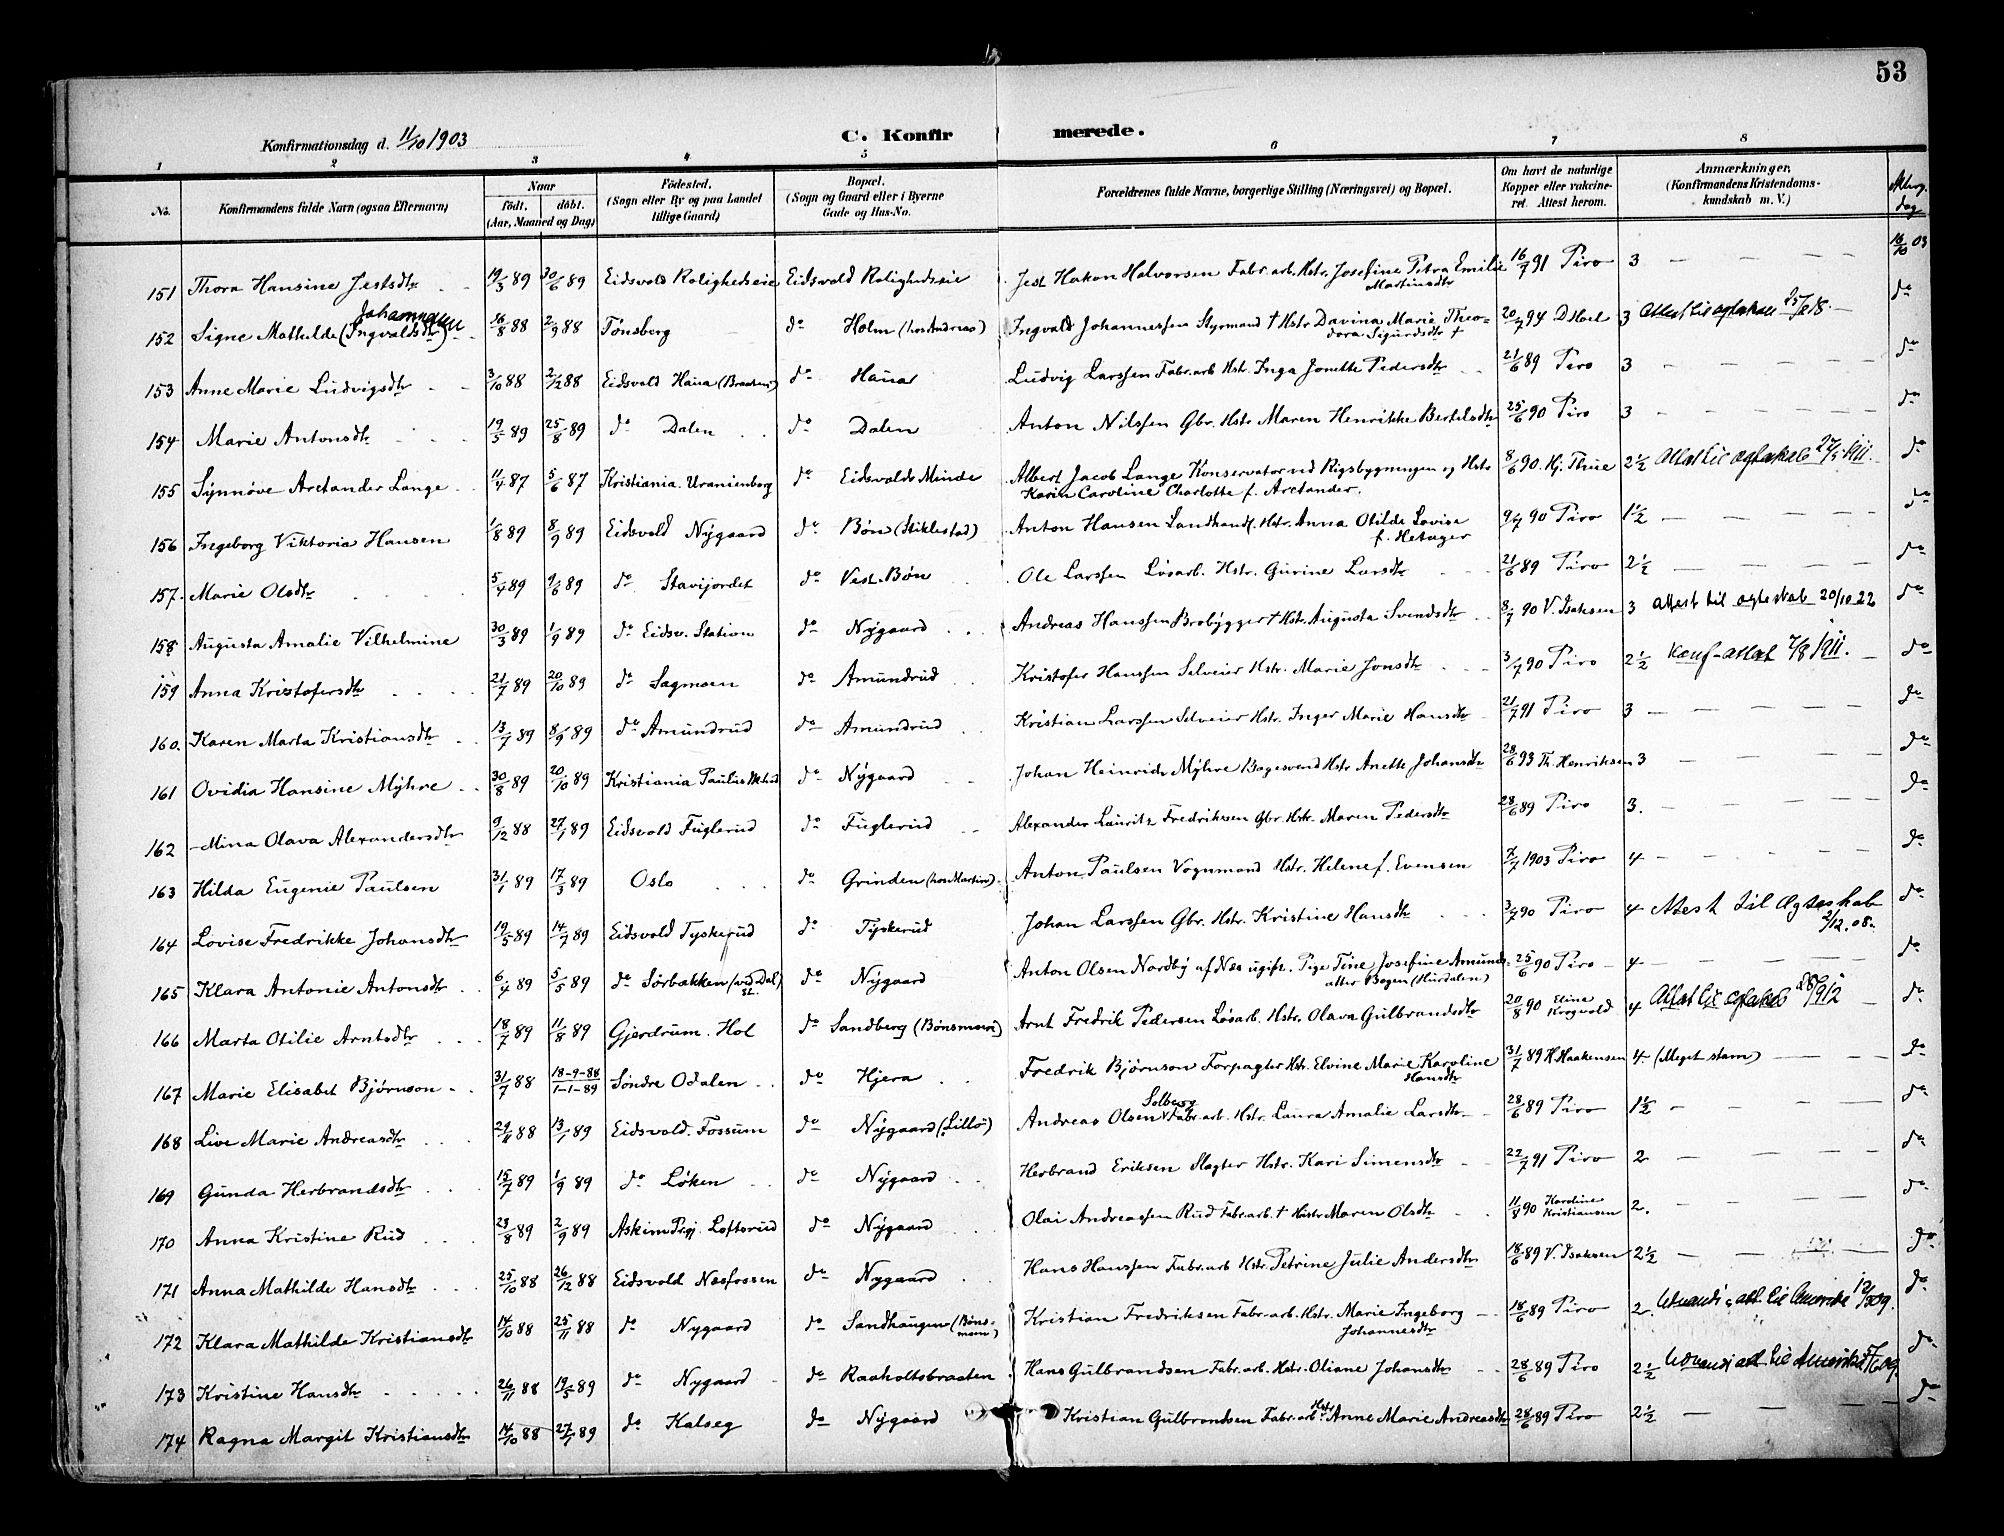 53
Konfirmationsdag d. 11/10 1903
C. Konfirmerede.
1 2 3 4 5 6 7 8
No.
Konfirmandens fulde Navn (ogsaa Efternavn)
Naar
födt. döbt.
(Aar, Maaned og Dag)
Födested.
(Sogn eller By og paa Landet
tillige Gaard)
Bopæl.
(Sogn og Gaard eller i Byerne
Gade og Hus-No.
Forældrenes fulde Navne, borgerlige Stilling (Næringsvei) og Bopæl.
Om havt de naturlige
Kopper eller vakcine-
ret. Attest herom.
Anmærkninger.
(Konfirmandens Kristendoms-
kundskab m. V.)
dag
151 Thora Hansine Jestsdtr 19/3 89 30/6 89 Eidsvold Roligheds eie Eidsvold Rolighedseie Jest Hakon Halvorsen Fabr. arb. Hstr. Josefine Petra Emilie Martinsdtr 16/7 91 Piro 3 – – – – 16/10 03
152 Signe Mathilde (Ingvaldsdtr) Johannesen 16/8 88 2/9 88 Tönsberg do Holm (hos Andreas) Ingvald Johannessen Styrmand † Hstr Davina Marie Theodora Sigurdsdtr † 20/7 94 3 do
153 Anne Marie Ludvigsdtr 3/10 88 2/12 88 Eidsvold Haua do Haua Ludvig Larssen Fabr. arb Hstr. Inga Jonette Pedersdtr 21/6 89 Piro 3 – – – do
154 Marie Antonsdtr 19/5 89 25/8 89 do Dalen do Dalen Anton Nilssen Gbr. Hstr Maren Henrikke Bertelsdtr 25/6 90 Piro 3 – – – do
155 Synnöve Arctander Lange 11/4 87 5/6 87 Kristiania. Uranienborg do Eidsvolds Minde Albert Jacob Lange Konservator ved Rigsbygningen og Hstr Karin Caroline Charlotte f. Arctander. 8/6 90. Hj. Thue 2½ do
156 Ingeborg Viktoria Hansen 1/8 89 8/9 89 Eidsvold Nygaard do Bøn (Stiklestad) Anton Hansen Landhandl. Hstr. Anna Otilde Lovise f. Hetager 9/7 90 Piro 1½ – – – do
157. Marie Olsdtr 5/4 89 9/6 89 do Stavijordet do Vest. Bøn Ole Larssen Løsarb. Hstr. Gurine Larsdtr 21/6 89 Piro 2½ – – – do
158 Augusta Amalie Vilhelmine 30/3 89 1/9 89 do Eidsv. Station do Nygaard Andreas Hanssen Brobygger † Hstr. Augusta Svendsdtr 8/7 90 V. Isaksen 3 Attest til ægteskab 20/10 22 do
159 Anna Kristofersdtr 21/7 89 20/10 89 do Sagmoen do Amundrud Kristofer Hanssen Selveier Hstr. Marie Jonsdtr 3/7 90 Piro 2½ Konf-attest 7/8 1911. – do
160. Karen Marta Kristiansdtr 13/7 89 8/9 89 do Amundrud do Amundrud Kristian Larssen Selveier Hstr. Inger Marie Hansdtr 21/7 91 Piro 3 – – – do
161 Ovidia Hansine Myhre 30/8 89 20/10 89 Kristiania Paulus do Nygaard Johan Heinrich Myhre Bagersvend Hstr Anette Johansdtr 28/6 93 Th. Henriksen 3 – – do
162 Mina Olava Alexandersdtr 9/12 88 27/1 89 Eidsvold Fuglerud do Fuglerud Alexander Lauritz Fredriksen Gbr. Hstr. Maren Pedersdtr 28/6 89 Piro 3. – – – do
163 Hilda Eugenie Paulsen 31/1 89 17/3 89 Oslo do Grinden (hos Martin) Anton Paulsen Vognmand Hstr. Helene f. Evensen 7/7 1903 Piro 4 – – – do
164 Lovise Fredrikke Johansdtr 19/5 89 14/7 89 Eidsvold Tyskerud do Tyskerud Johan Larssen Gbr. Hstr. Kristine Hansdtr 3/7 90 Piro 4 Attest til Ægteskab 2/12.08. do
165 Klara Antonie Antonsdtr 6/4 89 5/5 89 do Sörbakken (ved Dal St.) do Nygaard Anton Olsen Nordby af Næs ugift. Pige Tine Josefine Amundsdatter Bogen (Hurdalen) 25/6 90 Piro – 4 – – – do
166 Marta Otilie Arntsdtr 18/7 89 11/8 89 Gjerdrum. Hol do Sandberg (Bønsmoen) Arnt Fredrik Pedersen Løsarb. Hstr. Olava Gulbrandsdtr 20/8 90 Elina Krogvold 4 do
167 Marie Elisabet Bjørnson 31/7 88 18-9-88 1-1-89 Söndre Odalen do Hjera Fredrik Bjørnson Forpagter Hstr. Elvine Marie Karoline Hansdtr 31/7 89 H. Haakensen 4 (Meget stam) – – do
168 Live Marie Andreasdtr 29/11 88 13/1 89 Eidsvold. Fossum do Nygaard (Lillo) Andreas Olsen Solberg Fabr. arb. Hstr. Laura Amalie Larsdtr 28/6 89 Piro 1½ – – do
169 Gunda Herbrandsdtr 15/7 89 1/9 89 do Løken do Nygaard Herbrand Eriksen Slagter Hstr. Kari Simensdtr 22/7 91 Piro 2 – – do
170 Anna Kristine Rud 23/8 89 2/9 89 Askim Prgj. Loftsrud do Nygaard Olai Andreassen Rud Fabr. arb. † Hstr Maren Olsdtr 11/8 90 Karoline Kristiansen 2. – – do
171 Anna Mathilde Hansdtr 25/10 88 26/12 88 Eidsvold Næsfossen do Nygaard Hans Hanssen Fabr. arb Hstr. Petrine Julie Andersdtr 18/6 89 V. Isaksen 2½ – – do
172 Klara Mathilde Kristiansdtr 14/10 88 25/11 88 do Nygaard do Sandhaugen (Bønsmoen) Kristian Fredriksen Fabr. arb. Hstr. Marie Ingeborg Johannesdtr 18/6 89 Piro 2. Utvandr. att. til Amerika do
173 Kristine Hansdtr 26/11 88 19/5 89 do Nygaard do Raaholtsbraaten Hans Gulbrandsen Fabr. arb. Hstr. Oliane Johansdtr 28/6 89 Piro 2½ Utvandr att. til Amerika do
174 Ragna Margit Kristiansdtr 14/10 88 27/1 89 do Kalseg do Nygaard Kristian Gulbrandsen Fabr. arb Hstr Anne Marie Andreasdtr 28/6 89 Piro 2½ – – do